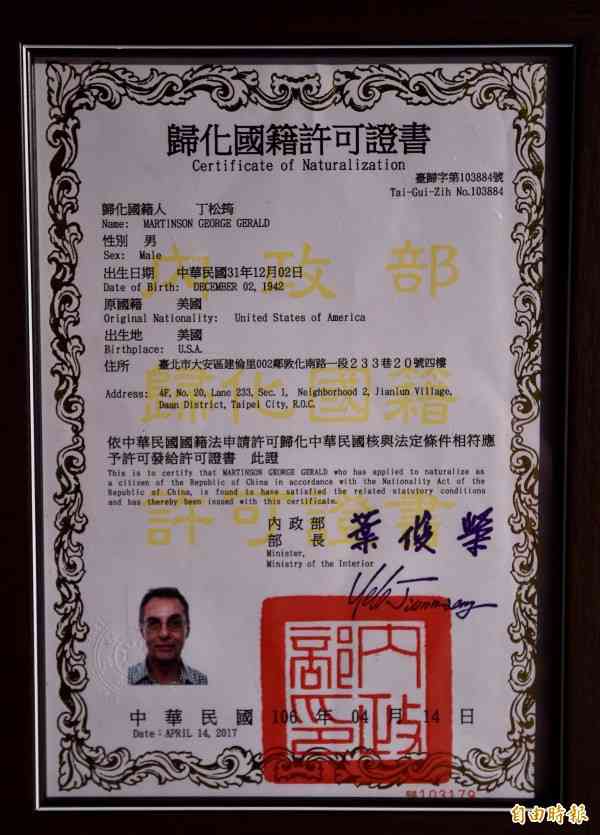 歸化國籍許可證書
Certificate of Naturalization
臺歸字第103884號
Tai-Gui-Zih No.103884
歸化國籍人 丁松筠
Name: MARTINSON GEORGE GERALD
性別 男
Sex: Male
出生日期 中華民國31年12月02日
Date of Birth: DECEMBER 02, 1942
原國籍 美國
Original Nationality: United States of America
出生地 美國
Birthplace: U.S.A.
住所 臺北市大安區建倫里002鄰敦化南路一段233巷20號四樓
Address: 4F, No. 20, Lane 233, Sec. 1, Neighborhood 2, Jianlun Village,
Daan District, Taipei City, R.O.C.
內政部
歸化國籍
許可證書
依中華民國國籍法申請許可歸化中華民國核與法定條件相符應
予許可發給許可證書 此證
This is to certify that MARTINSON GEORGE GERALD who has applied to naturalize as
a citizen of the Republic of China in accordance with the Nationality Act of the
Republic of China, is found to have satisfied the related statutory conditions
and has thereby been issued with this certificate.
內政部
部長 葉俊榮
Minister,
Ministry of the Interior
內政部印
中華民國 106 年 04 月 14 日
Date:APRIL 14, 2017
103179
自由時報